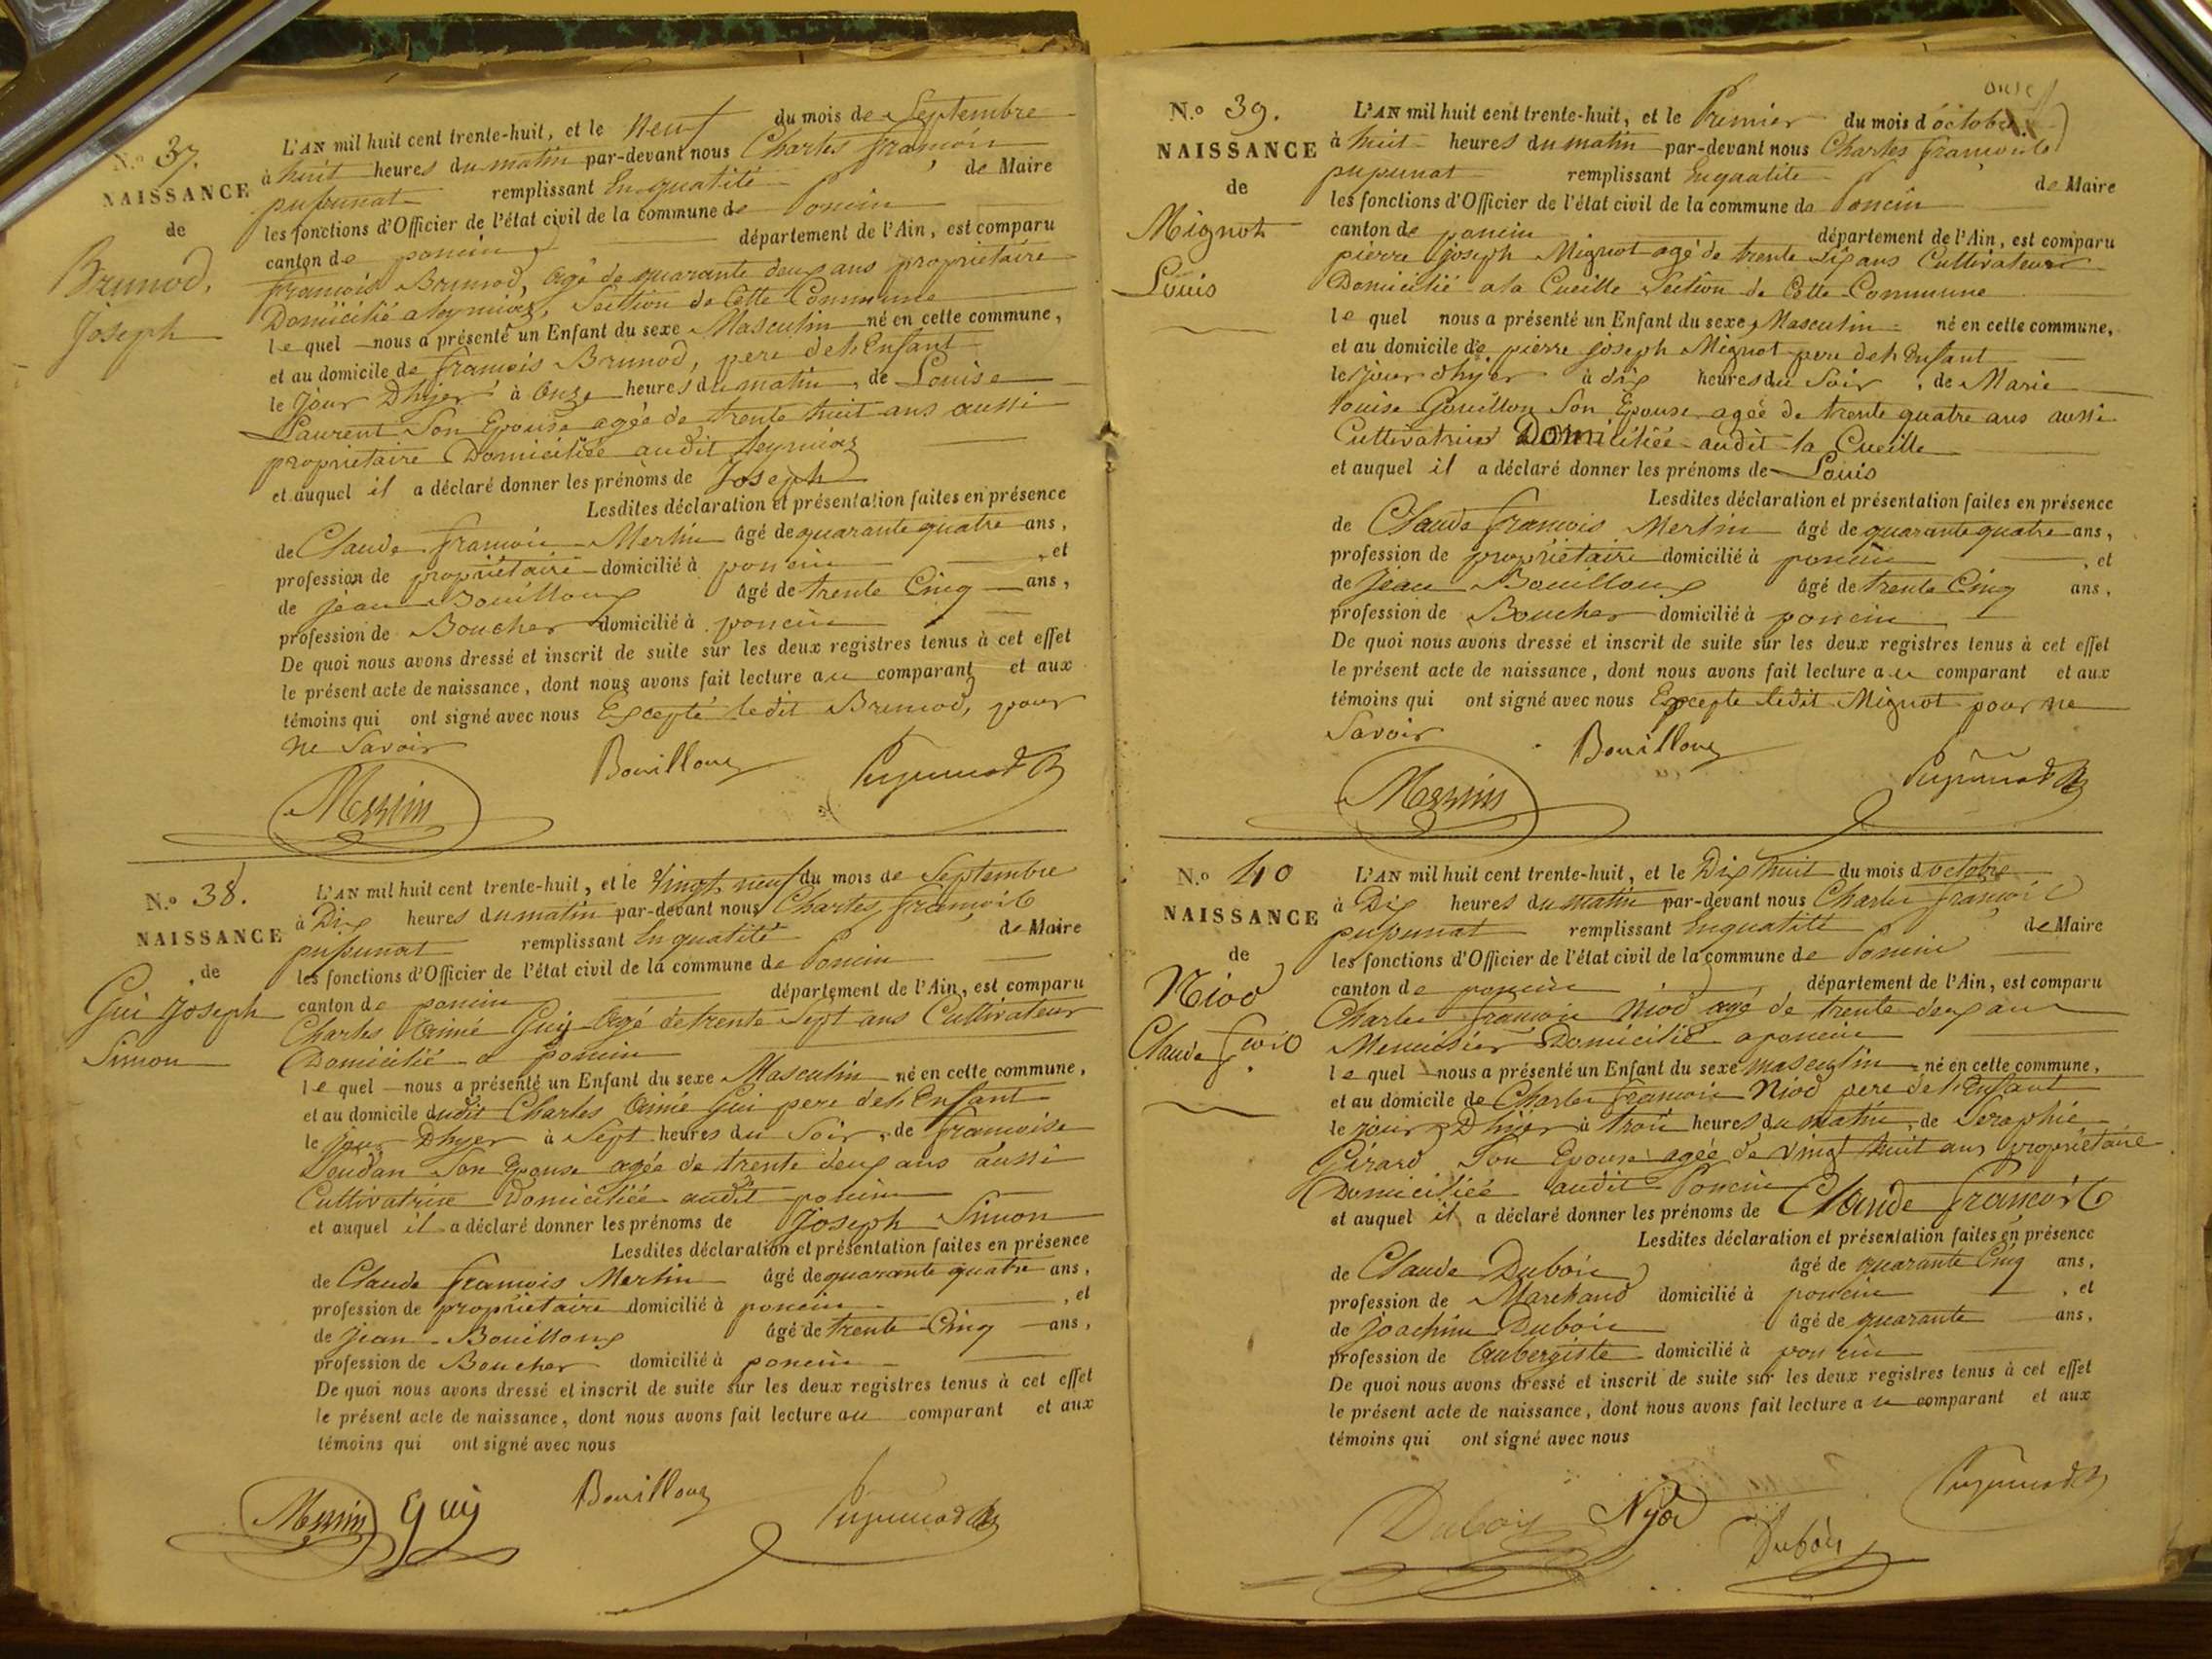 N.o 37.
NAISSANCE
de
Brunod,
Joseph
L'AN mil huit cent trente-huit, et le neuf du mois de Septembre
à huit heures du matin par-devant nous Charles françois
pupunat remplissant En qualité de Maire
les fonctions d'Officier de l'état civil de la commune de Poncin
canton de poncin département de l'Ain, est comparu
françois Brunod, agé de quarante deux ans propriétaire
Domicilié a leymiaz, Section de Cette Commune
le quel nous a présenté un Enfant du sexe Masculin né en cette commune,
et au domicile de françois Brunod, pere de l'Enfant
le Jour D'hyer à Onze heures du matin, de Louise
Laurent Son Epouse agée de trente huit ans aussi
propriétaire Domiciliée audit leymiaz
et auquel il a déclaré donner les prénoms de Joseph
Lesdites déclaration et présentation faites en présence
de Claude françois Merlin âgé de quarante quatre ans,
profession de propriétaire domicilié à poncin , et
de jean Bouilloux âgé de trente Cinq ans,
profession de Boucher domicilié à poncin
De quoi nous avons dressé et inscrit de suite sur les deux registres tenus à cet effet
le présent acte de naissance, dont nous avons fait lecture au comparant et aux
témoins qui ont signé avec nous Excepté ledit Brunod, pour
ne Savoir
Bouilloux
Pupunat
Merlin
N.o 38.
NAISSANCE
de
Gui Joseph
Simon
L'AN mil huit cent trente-huit, et le Vingt neuf du mois de Septembre
à Dix heures du matin par-devant nous Charles françois
pupunat remplissant En qualité de Maire
les fonctions d'Officier de l'état civil de la commune de Poncin
canton de poncin département de l'Ain, est comparu
Charles Aimé Guy Agé de trente Sept ans Cultivateur
Domicilié a poncin
le quel nous a présenté un Enfant du sexe Masculin né en cette commune,
et au domicile dudit Charles Aimé Gui pere de l'Enfant
le jour D'hyer à Sept heures du Soir, de françoise
Soudan Son Epouse agée de trente deux ans aussi
Cultivatrice Domiciliée audit poncin
et auquel il a déclaré donner les prénoms de Joseph Simon
Lesdites déclaration et présentation faites en présence
de Claude françois Merlin âgé de quarante quatre ans,
profession de propriétaire domicilié à poncin , et
de jean Bouilloux âgé de trente Cinq ans,
profession de Boucher domicilié à poncin
De quoi nous avons dressé et inscrit de suite sur les deux registres tenus à cet effet
le présent acte de naissance, dont nous avons fait lecture au comparant et aux
témoins qui ont signé avec nous
Merlin Guy Bouilloux Pupunat
N.o 39.
NAISSANCE
de
Mignot
Louis
L'AN mil huit cent trente-huit, et le Premier du mois d'octobre
à huit heures du matin par-devant nous Charles françois
pupunat remplissant En qualité de Maire
les fonctions d'Officier de l'état civil de la commune de Poncin
canton de poncin département de l'Ain, est comparu
pierre Joseph Mignot agé de trente Six ans Cultivateur
Domicilié a la Cueille Section de Cette Commune
le quel nous a présenté un Enfant du sexe Masculin né en cette commune,
et au domicile de pierre joseph Mignot pere de l'Enfant
le jour d'hyer à dix heures du Soir, de Marie
louise Gouillon Son Epouse agée de trente quatre ans aussi
Cultivatrice Domiciliée audit la Cueille
et auquel il a déclaré donner les prénoms de Louis
Lesdites déclaration et présentation faites en présence
de Claude françois Merlin âgé de quarante quatre ans,
profession de propriétaire domicilié à poncin , et
de jean Bouilloux âgé de trente Cinq ans,
profession de Boucher domicilié à poncin
De quoi nous avons dressé et inscrit de suite sur les deux registres tenus à cet effet
le présent acte de naissance, dont nous avons fait lecture au comparant et aux
témoins qui ont signé avec nous Excepte ledit Mignot pour ne
Savoir
Bouilloux
Pupunat
Merlin
N.o 40
NAISSANCE
de
Niod
Claude fçois
L'AN mil huit cent trente-huit, et le Dix huit du mois d'octobre
à Dix heures du matin par-devant nous Charles françois
pupunat remplissant En qualité de Maire
les fonctions d'Officier de l'état civil de la commune de Poncin
canton de poncin département de l'Ain, est comparu
Charles françois Niod agé de trente deux ans
Menuisier Domicilié a poncin
le quel nous a présenté un Enfant du sexe masculin né en cette commune,
et au domicile de Charles françois Niod pere de l'Enfant
le jour D'hyer à trois heures du matin, de Seraphie
Girard Son Epouse agée de vingt huit ans propriétaire
Domiciliée audit Poncin
et auquel il a déclaré donner les prénoms de Claude françois
Lesdites déclaration et présentation faites en présence
de Claude Dubois âgé de quarante Cinq ans,
profession de Marchand domicilié à poncin , et
de Joachim Dubois âgé de quarante ans,
profession de Aubergiste domicilié à poncin
De quoi nous avons dressé et inscrit de suite sur les deux registres tenus à cet effet
le présent acte de naissance, dont nous avons fait lecture au comparant et aux
témoins qui ont signé avec nous
Dubois Nyod Dubois Pupunat